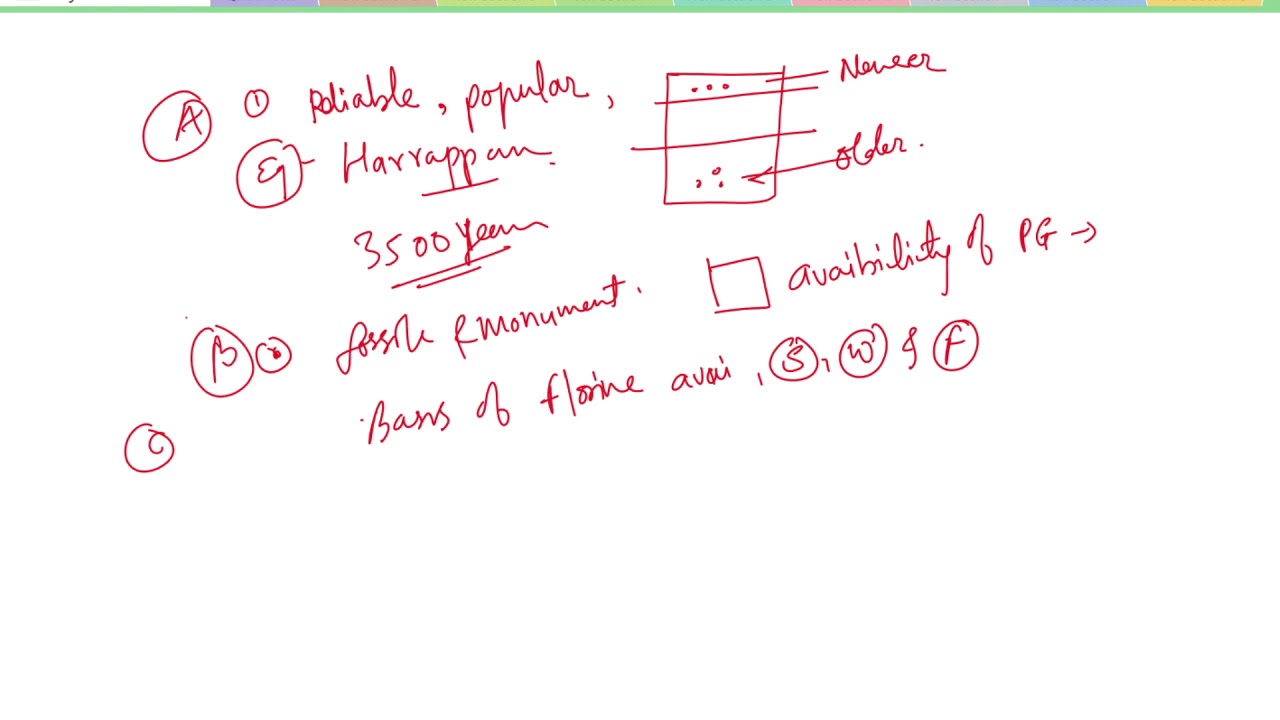 A ① Reliable, popular,
Newer
Eg - Harrappan.
older.
3500 years
B ② fossile & Monument.
avaibility of PG →
Basis of florine avai, S, W & F
C